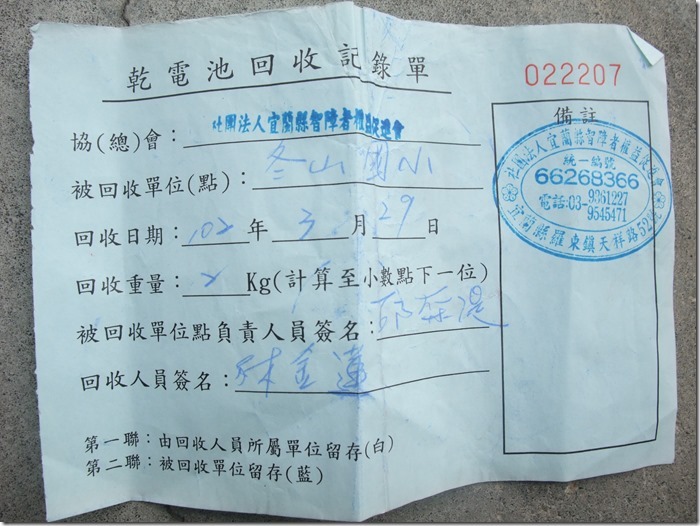 乾電池回收記錄單
022207
協(總)會：社團法人宜蘭縣智障者權益促進會
被回收單位(點)：冬山國小
回收日期：102年3月29日
回收重量：2Kg(計算至小數點下一位)
被回收單位點負責人員簽名：邱
回收人員簽名：林金蓮
第一聯：由回收人員所屬單位留存(白)
第二聯：被回收單位留存(藍)
備註
社團法人宜蘭縣智障者權益促進會
統一編號
66268366
電話:03-9361227
9545471
宜蘭縣羅東鎮天祥路